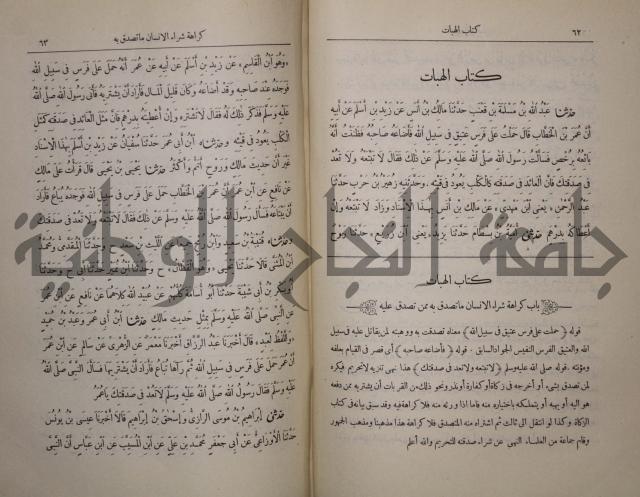 ٦٢
كتاب الهبات
كتاب الهبات
حدثنا عبد الله بن مسلمة بن قعنب حدثنا مالك بن أنس عن زيد بن أسلم عن أبيه
أن عمر بن الخطاب قال حملت على فرس عتيق في سبيل الله فأضاعه صاحبه فظننت أنه
بائعه برخص فسألت رسول الله صلى الله عليه وسلم عن ذلك فقال لا تبتعه ولا تعد
في صدقتك فان العائد في صدقته كالكلب يعود في قيئه . وحدثنيه زهير بن حرب حدثنا
عبد الرحمن « يعنى ابن مهدى » عن مالك بن أنس بهذا الاسناد وزاد لا تبتعه وإن
أعطاكه بدرهم حدثنى أمية بن بسطام حدثنا يزيد « يعنى ابن زريع » حدثنا روح
كتاب الهبات
باب كراهة شراء الانسان ما تصدق به ممن تصدق عليه
قوله ﴿حملت على فرس عتيق في سبيل الله﴾ معناه تصدقت به ووهبته لمن يقاتل عليه في سبيل
الله والعتيق الفرس النفيس الجواد السابق . قوله ﴿فأضاعه صاحبه﴾ أى قصر في القيام بعلفه
ومؤنته . قوله صلى الله عليه وسلم ﴿لا تبتعه ولا تعد في صدقتك﴾ هذا نهى تنزيه لا تحريم فيكره
لمن تصدق بشىء أو أخرجه في زكاة أو كفارة أو نذر ونحو ذلك من القربات أن يشتريه ممن دفعه
هو اليه أو يهبه أو يتملكه باختياره منه فاما اذا ورثه منه فلا كراهة فيه وقد سبق بيانه في كتاب
الزكاة وكذا لو انتقل الى ثالث ثم اشتراه منه المتصدق فلا كراهة هذا مذهبنا ومذهب الجمهور
وقام جماعة من العلماء النهى عن شراء صدقته للتحريم والله أعلم
كراهة شراء الانسان ما تصدق به
٦٣
« وهو ابن القاسم » عن زيد بن أسلم عن أبيه عن عمر أنه حمل على فرس في سبيل الله
فوجده عند صاحبه وقد أضاعه وكان قليل المال فأراد أن يشتريه فأتى رسول الله صلى الله
عليه وسلم فذكر ذلك له فقال لا تشتره وإن أعطيته بدرهم فان مثل العائد في صدقته كمثل
الكلب يعود في قيئه . وحدثناه ابن أبى عمر حدثنا سفيان عن زيد بن أسلم بهذا الاسناد
غير أن حديث مالك وروح أتم وأكثر حدثنا يحيى بن يحيى قال قرأت على مالك
عن نافع عن ابن عمر أن عمر بن الخطاب حمل على فرس في سبيل الله فوجده يباع فأراد
أن يبتاعه فسأل رسول الله صلى الله عليه وسلم عن ذلك فقال لا تبتعه ولا تعد في صدقتك
وحدثناه قتيبة بن سعيد وابن رمح جميعا عن الليث بن سعد ح وحدثنا المقدمى ومحمد
ابن المثنى قالا حدثنا يحيى « وهو القطان » ح وحدثنا ابن نمير حدثنا أبى ح وحدثنا
أبو بكر بن أبى شيبة حدثنا أبو أسامة كلهم عن عبيد الله كلاهما عن نافع عن ابن عمر
عن النبى صلى الله عليه وسلم بمثل حديث مالك حدثنا ابن أبى عمر وعبد بن حميد
« واللفظ لعبد » قال أخبرنا عبد الرزاق أخبرنا معمر عن الزهرى عن سالم عن ابن عمر
أن عمر حمل على فرس في سبيل الله ثم رآها تباع فأراد أن يشتريها فسأل النبى صلى الله
عليه وسلم فقال رسول الله صلى الله عليه وسلم لا تعد في صدقتك يا عمر
حدثنى إبراهيم بن موسى الرازى وإسحق بن إبراهيم قالا أخبرنا عيسى بن يونس
حدثنا الأوزاعى عن أبى جعفر محمد بن على عن ابن المسيب عن ابن عباس أن النبى
جامعة النجاح الوطنية